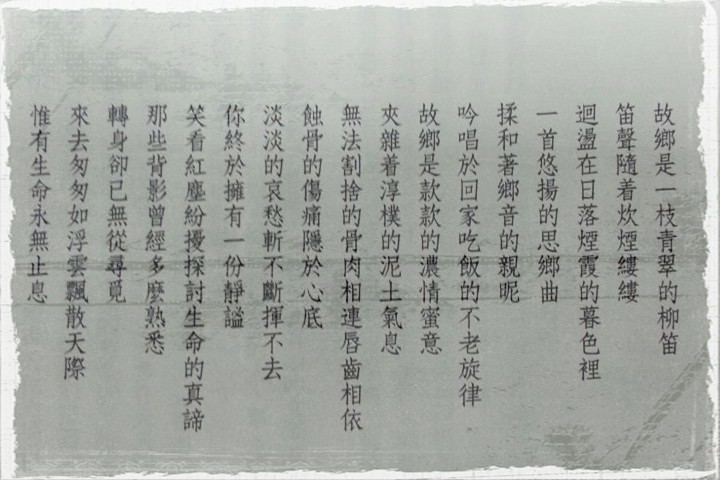 故鄉是一枝青翠的柳笛
笛聲隨着炊煙縷縷
迴盪在日落煙霞的暮色裡
一首悠揚的思鄉曲
揉和著鄉音的親昵
吟唱於回家吃飯的不老旋律
故鄉是款款的濃情蜜意
夾雜着淳樸的泥土氣息
無法割捨的骨肉相連唇齒相依
蝕骨的傷痛隱於心底
淡淡的哀愁斬不斷揮不去
你終於擁有一份靜謐
笑看紅塵紛擾探討生命的真諦
那些背影曾經多麼熟悉
轉身卻已無從尋覓
來去匆匆如浮雲飄散天際
惟有生命永無止息